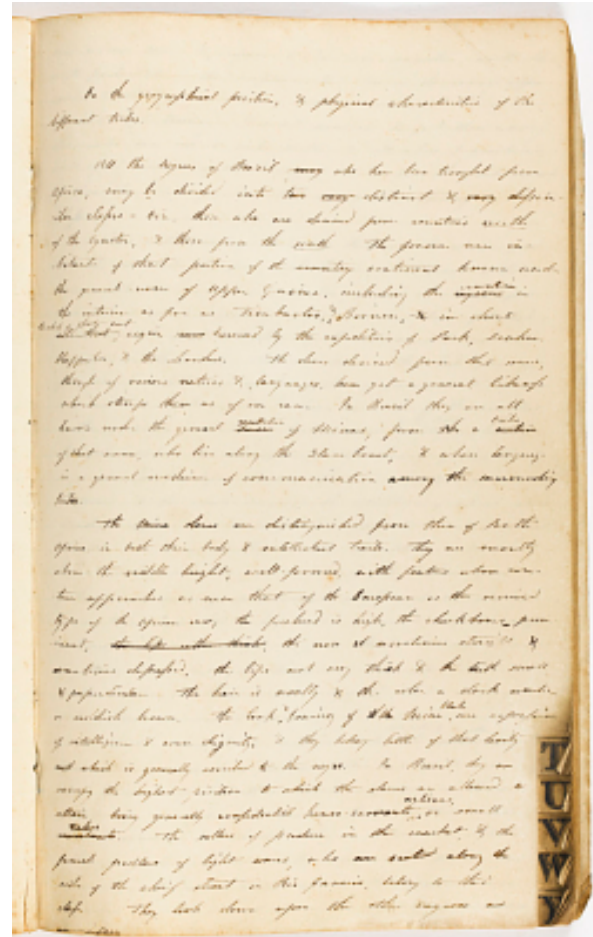 On the geographical position, & physical characteristics of the
different tribes.
All the negroes of Brazil who have been brought from
Africa, may be divided into two very distinct & very
classes - viz. those who are derived from countries north
of the Equator, & those from the south. The former are in-
of that portion of the country known under
the general name of Upper Guinea, including the in
the interior as far as Timbuctoo, & Bornou, & in short
region traversed by the expeditions of Park,
Clapperton, & the Landers. The slaves derived from this source,
though of various nations & languages, have yet a general
which stamps them as of one race. In Brazil they are all
known under the general of Minas, from a
of that name, who live along the Slave Coast, & whose language
is a general medium of communication among the surrounding
tribes.
The Mina slaves are distinguished from those of South
Africa in both their body & intellectual traits. They are mostly
above the middle height, well-formed, with features whose
approximates more that of the European as the received
type of the race, the forehead is high, the cheekbones prom-
inent, the nose at sometimes &
sometimes depressed, the lips not very thick & the small
& The hair is woolly & the color a dark
or reddish brown. The look & bearing of the Mina are expressive
of intelligence & even dignity, & they betray little of that levity
which is generally ascribed to the negro. In Brazil, they
occupy the highest position to which the slaves are allowed to
attain, being generally confidential house-servants, artisans, or small
The sellers of produce in the market, & the
general peddlers of light wares, who are seated along the
side of the chief street in Rio Janeiro, belong to this
class. They look down upon the other negroes as
T
U
V
W
Y